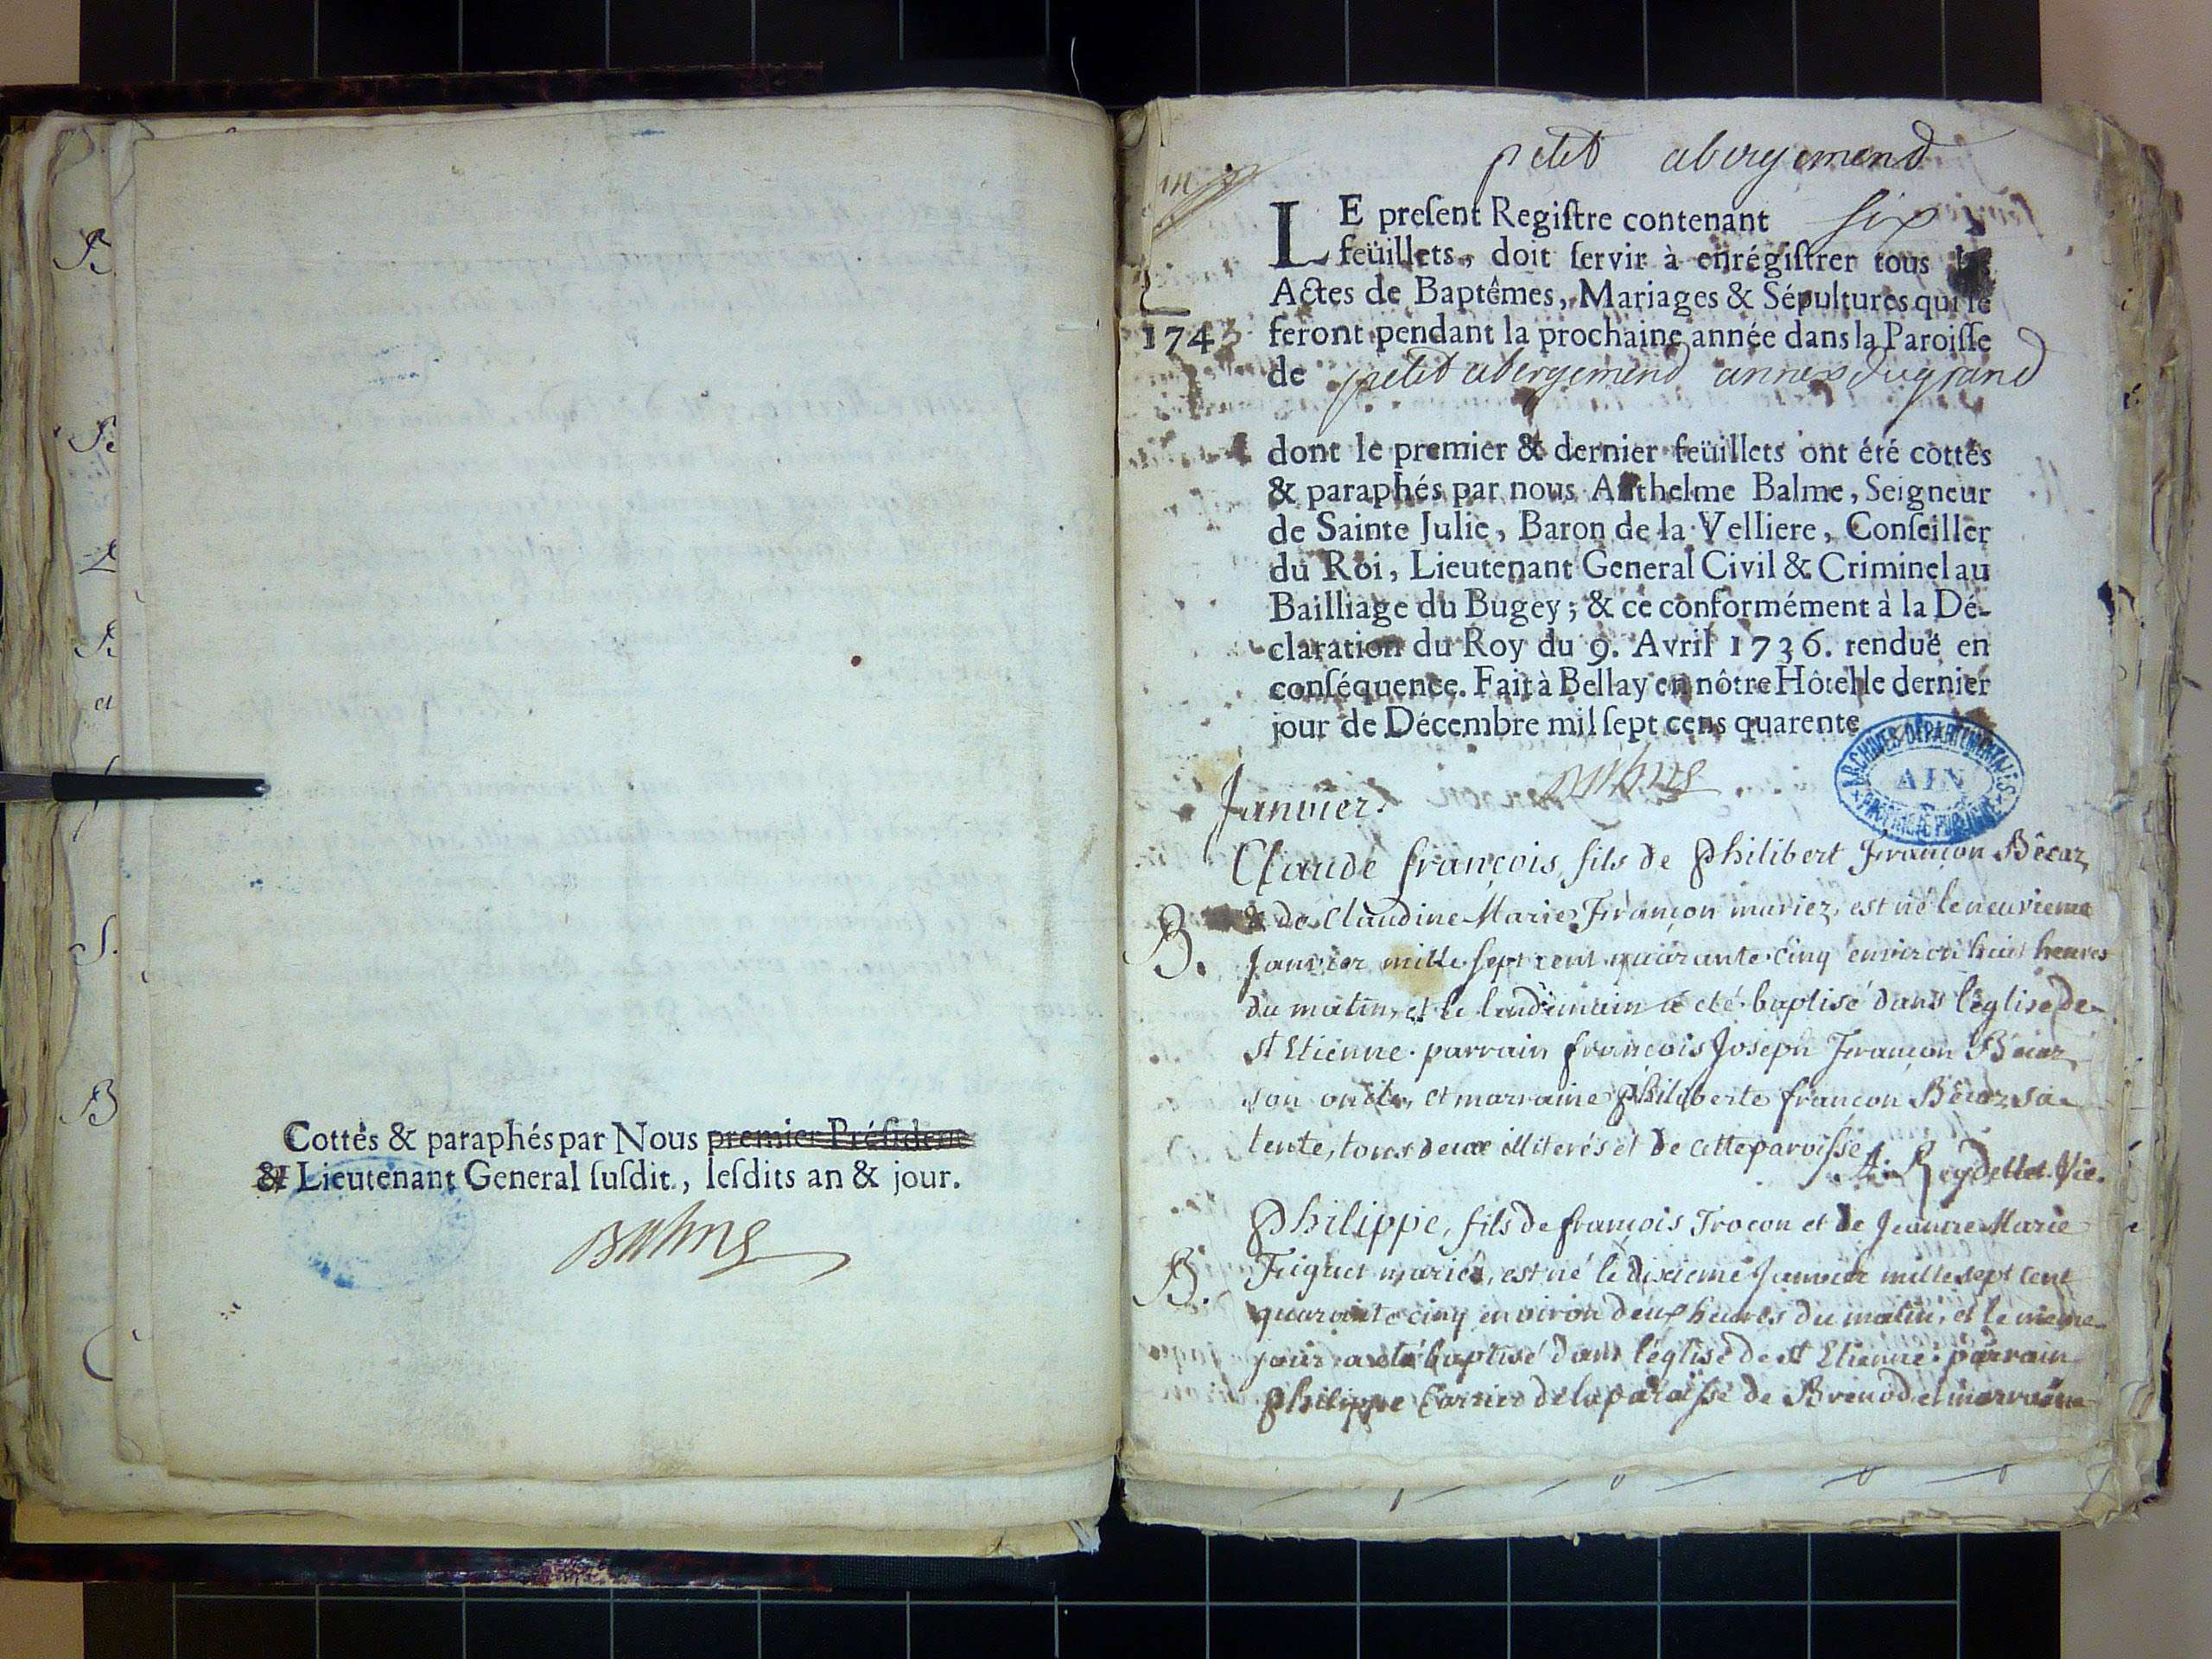 B
B
B
a
S.
B
Cottés & paraphés par Nous premier Président
& Lieutenant General ſuſdit, leſdits an & jour.
Balme
petit abergement
LE preſent Regiſtre contenant six
feüillets, doit ſervir à enrégiſtrer tous les
Actes de Baptêmes, Mariages & Sépultures qui ſe
1745
feront pendant la prochaine année dans la Paroiſſe
de petit abergement annex du grand
dont le premier & dernier feüillets ont été cottés
& paraphés par nous Anthelme Balme, Seigneur
de Sainte Julie, Baron de la Velliere, Conſeiller
du Roi, Lieutenant General Civil & Criminel au
Bailliage du Bugey; & ce conformément à la Dé-
claration du Roy du 9. Avril 1736. renduë en
conſéquence. Fait à Bellay en nôtre Hôtel le dernier
jour de Décembre mil ſept cens quarente
Balme
ARCHIVES DÉPARTEMENTALES
AIN
PROPRIÉTÉ PUBLIQUE
Janvier.
Claude françois, fils de Philibert Françon Bécaz
& de Claudine Marie Françon mariez, est né le neuvieme
B.
Janvier mille sept cent quarante cinq environ huit heures
du matin, et le landemain a été baptisé dans l'église de
st Etienne. parrain françois Joseph Françon Bécaz
son oncle, et marraine Philiberte françon Bécaz sa
tente, tous deux illiterés et de cette paroisse
A. Reydellet Vic.
Philippe, fils de françois Trocon et de Jeanne Marie
B.
mariés, est né le dixieme Janvier mille sept cent
quarante cinq environ deux heures du matin, et le meme
jour a été baptisé dans l'église de st Etienne. parrain
philippe Carrier de la paroisse de Brenod et marraine